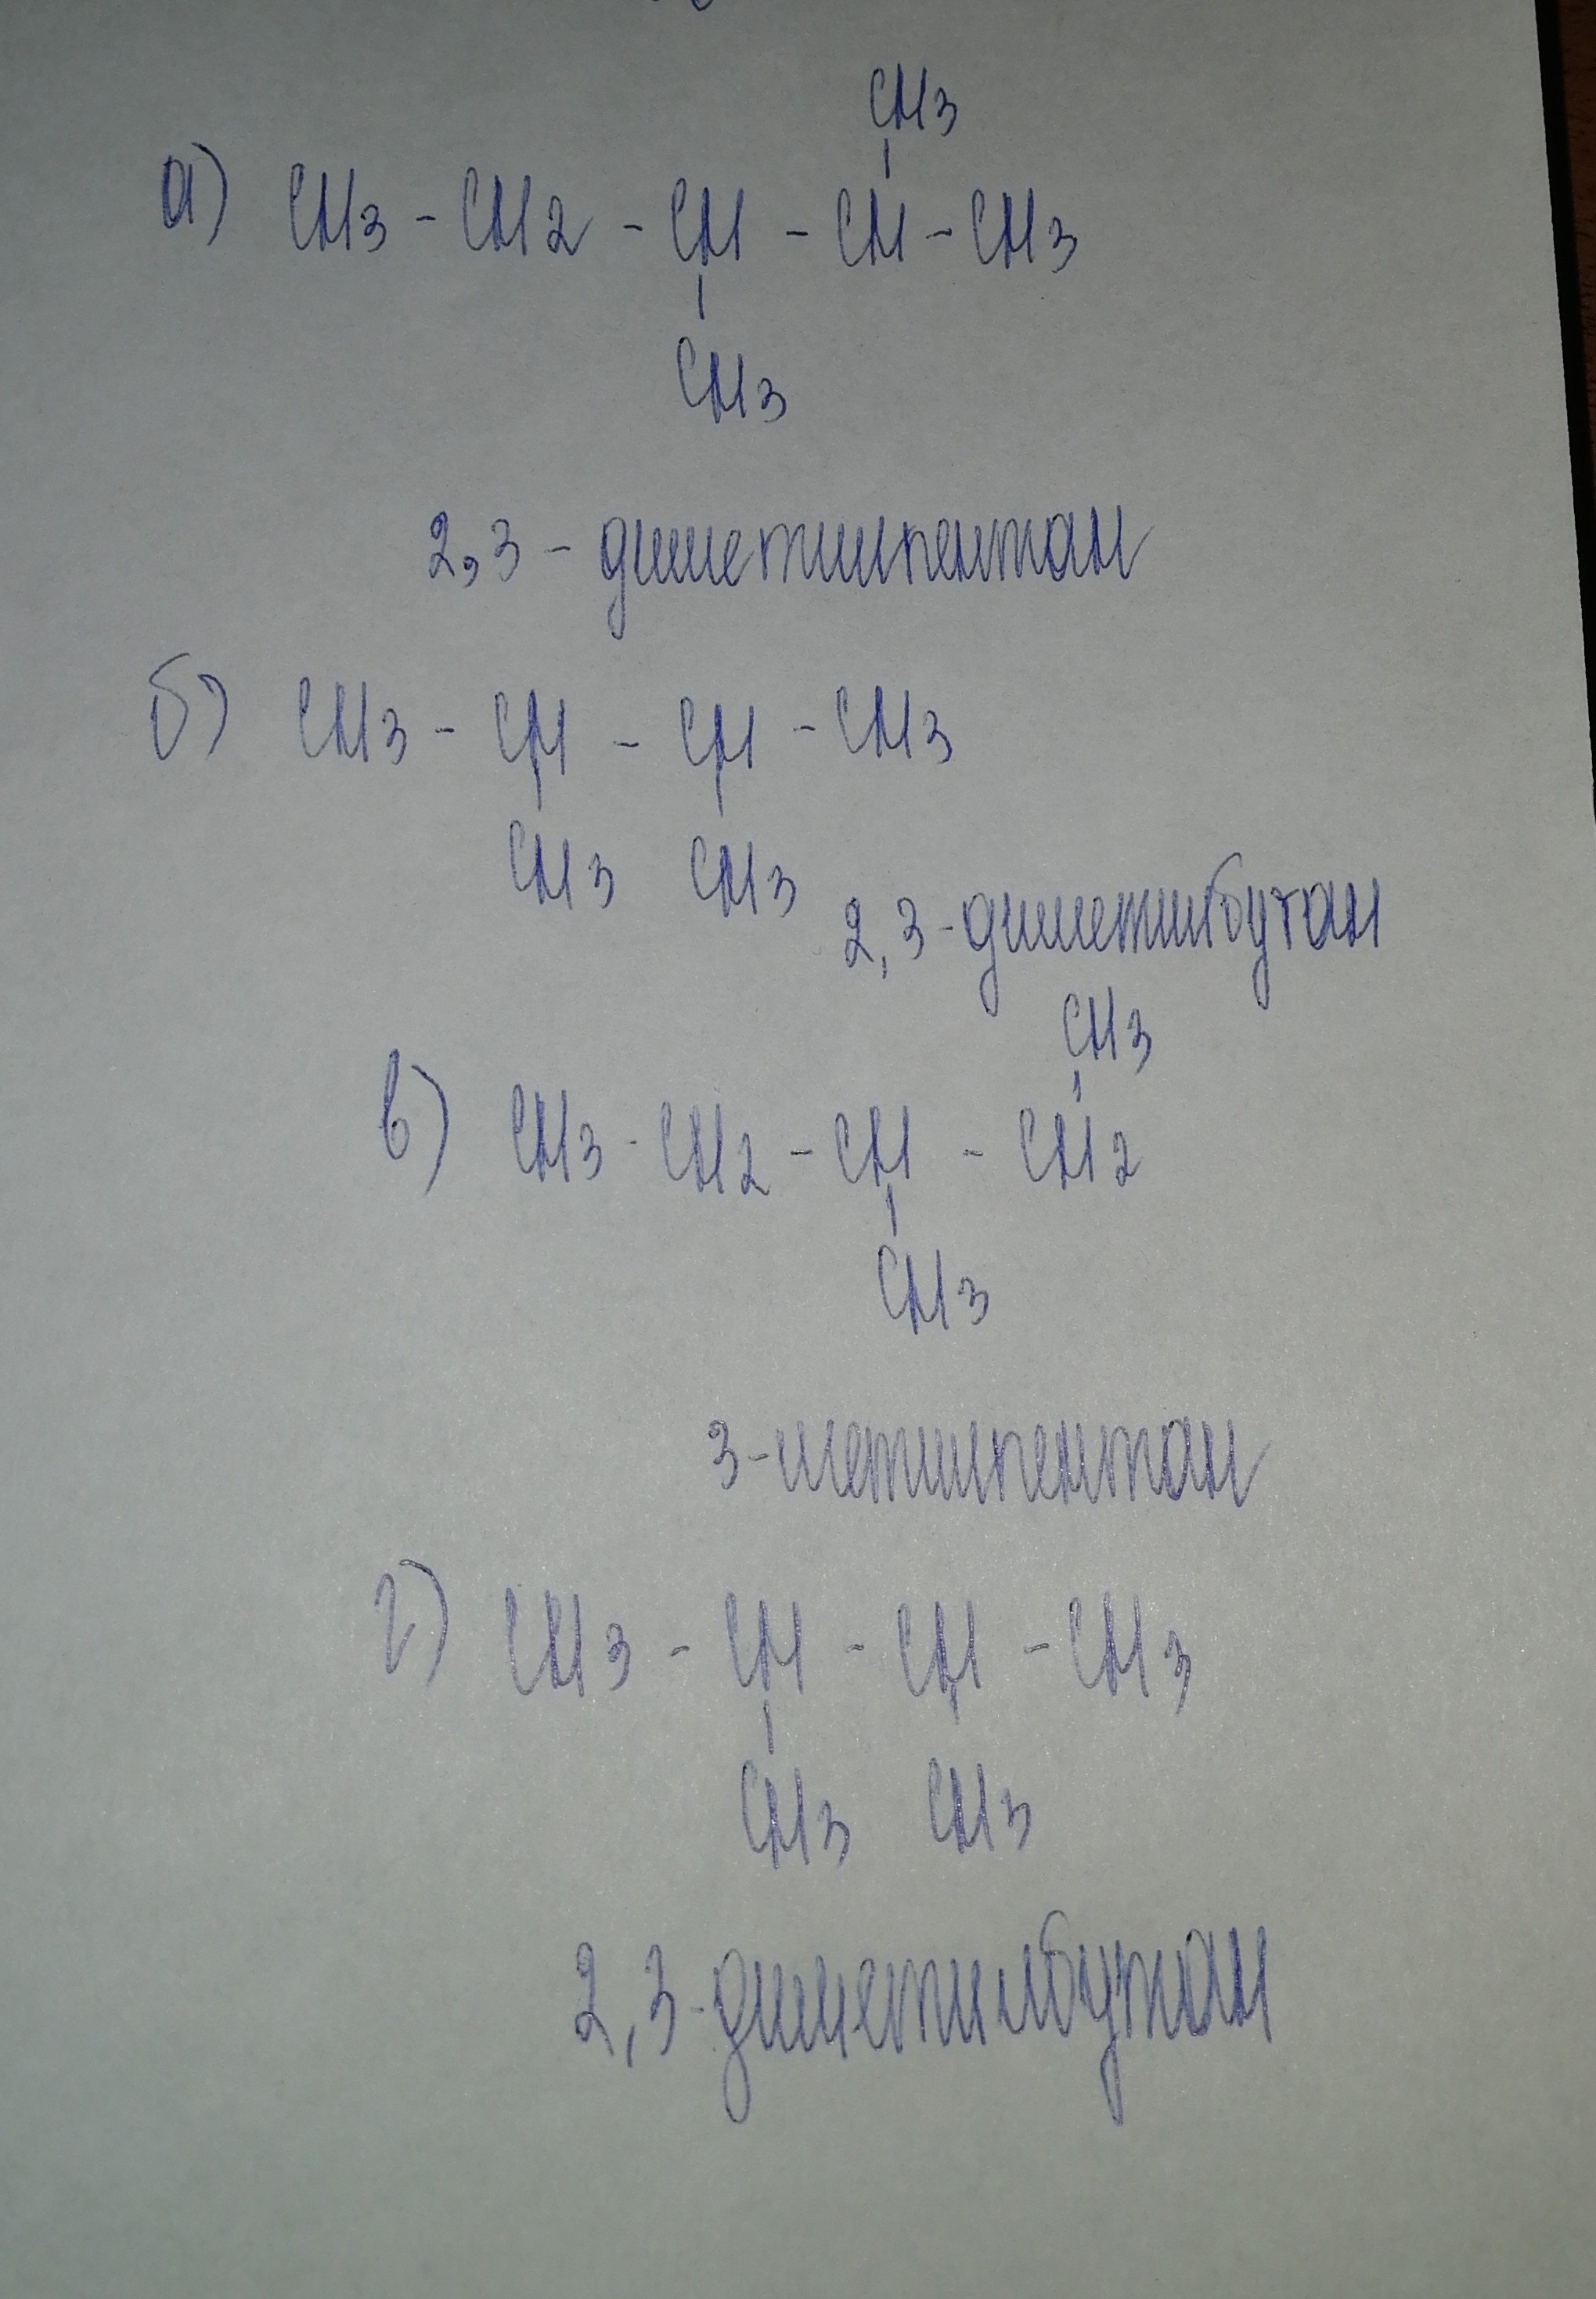 CH3
а) CH3 - CH2 - CH - CH - CH3
CH3
2,3 - диметилпентан
б) CH3 - CH - CH - CH3
CH3 CH3
2,3-диметилбутан
CH3
в) CH3 - CH2 - CH - CH2
CH3
3-метилпентан
г) CH3 - CH - CH - CH3
CH3 CH3
2,3-диметилбутан